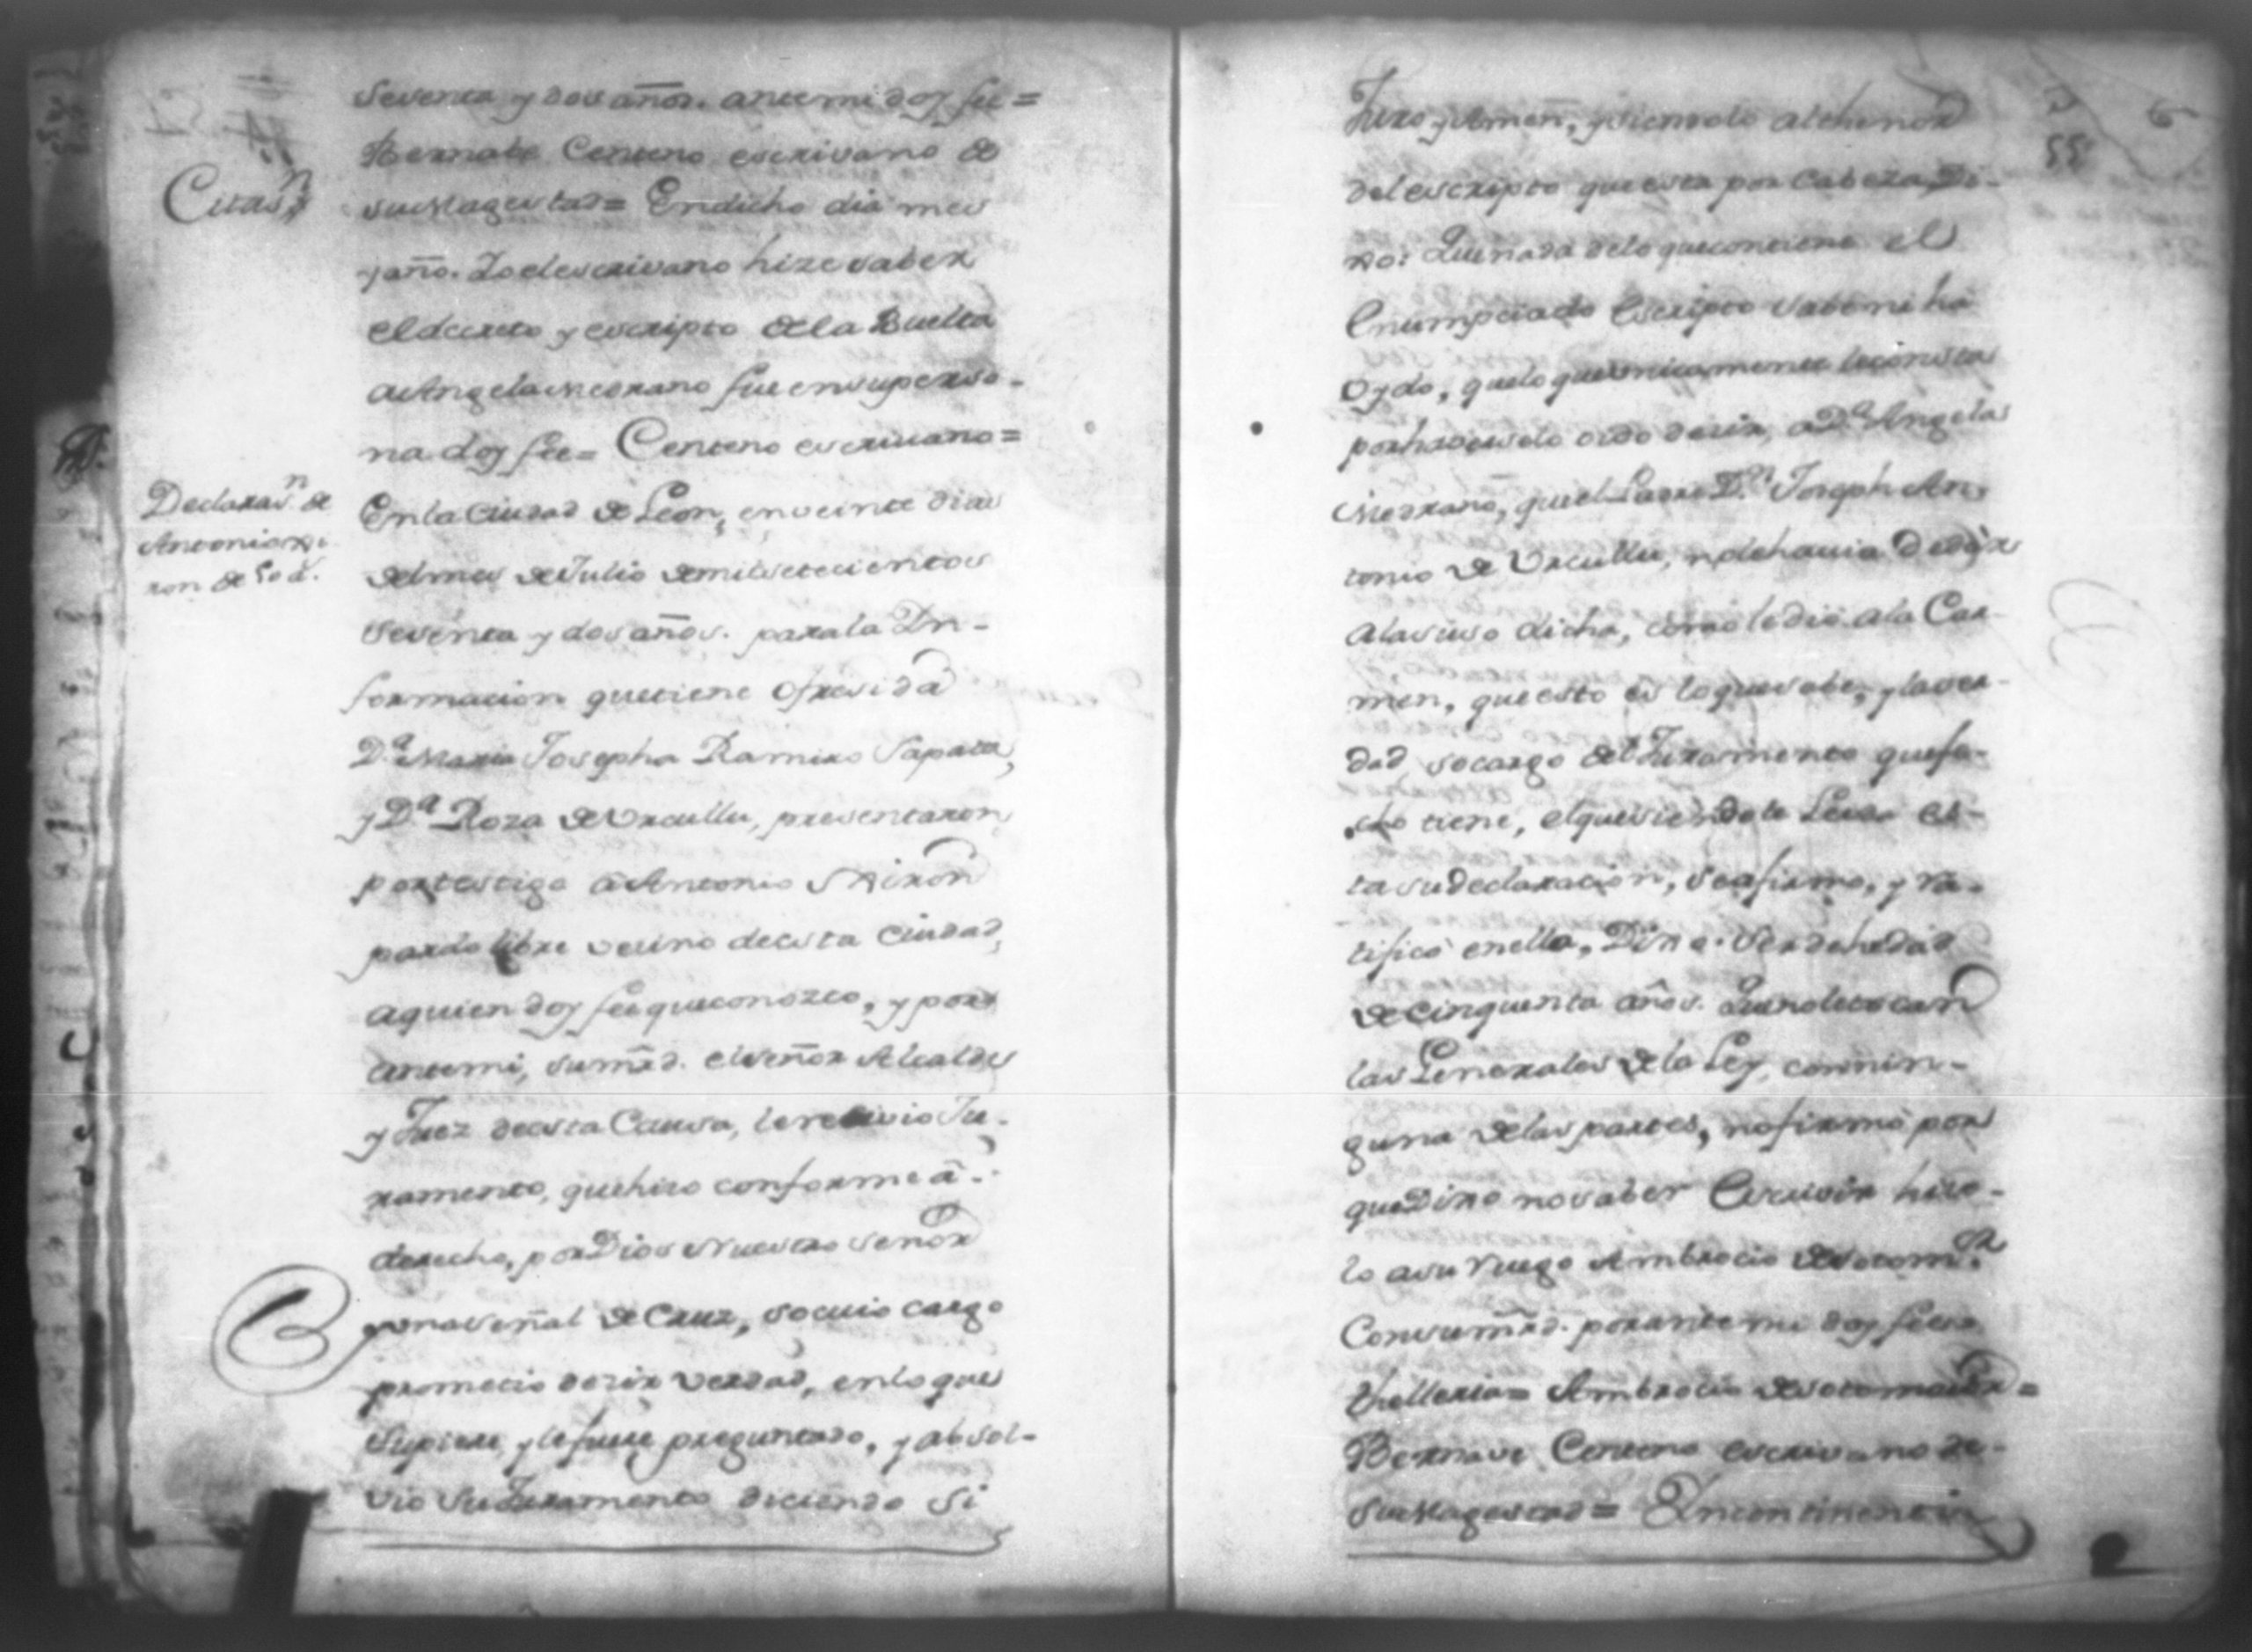 Seventa y dos años. antemi doy fee=
Bernabe Centeno escrivano de
su Magestad= En dicho dia mes
y año. Yo el escrivano hize saber
el decreto y escripto de la Buelta
a Angela Medrano fue en su perso-
na doy fee= Centeno escrivano=
En la Ciudad de Leon, en veinte dias
del mes de Julio de mil setecientos
Seventa y dos años. para la In-
formacion que tiene Ofresida
D.ª Maria Josepha Ramiro Sapata,
y D.ª Roza de Urcullu, presentaron
por testigo a Antonio
pardo libre vecino de esta Ciudad,
a quien doy fee que conozco, y por
antemi, su mrd. el señor Alcalde
y Juez de esta Causa, le recivio Ju-
ramento, que hizo conforme a
derecho, por Dios Nuestro Señor
y una señal de Cruz, so cuio cargo
prometio dezir verdad, en lo que
Supiere y le fuere preguntado, y absol-
vio su Juramento diciendo Si
Citas.n
Declaras.n de
Antonio
6
55
Juro, y Amen, y siendolo al thenor
del escripto que esta por Cabeza Di-
xo: Que nada de lo que contiene el
Enumpciado Escripto sabe ni ha
Oydo, que lo que unicamente le consta
por haverselo oido decir, a D.ª Angela
Medrano, que el Padre D.n Joseph An-
tonio de Urcullu,
a la suso dicha, como le dio a la Car-
men, que esto es lo que sabe, y la ver-
dad, so cargo del Juramento que fe-
cho tiene, el que siendole Leida es-
ta su declaracion, se afirmo, y ra-
tifico en ella, Dixo. Ser de hedad
de Cinquenta años. Que no le tocan
las Generales de la Ley, con nin-
guna de las partes, no firmo por
que Dixo no saber Escrivir hizo-
lo a su ruego Ambrocio de Sotom.or
Con su mrd. por antemi doy fee
Ambrocio de Sotomaior=
Bernave Centeno escrivano de
su Magestad= Yncontinenti